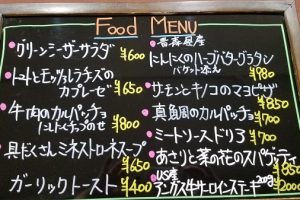 Food MENU
グリーンシーザーサラダ ¥600
トマトとモッツァレラチーズの
カプレーゼ ¥650
牛肉のカルパッチョ
¥800
具だくさんミネストローネスープ
¥650
ガーリックトースト ¥400
青森県産
にんにくのハーブバターグラタン
バケット添え ¥980
サーモンとキノコのマヨピザ
¥850
真鯛のカルパッチョ
¥700
ミートソースドリア ¥700
あさりと菜の花のスパゲッティ
¥850
US産
アンガス牛サーロインステーキ 200g
¥2000